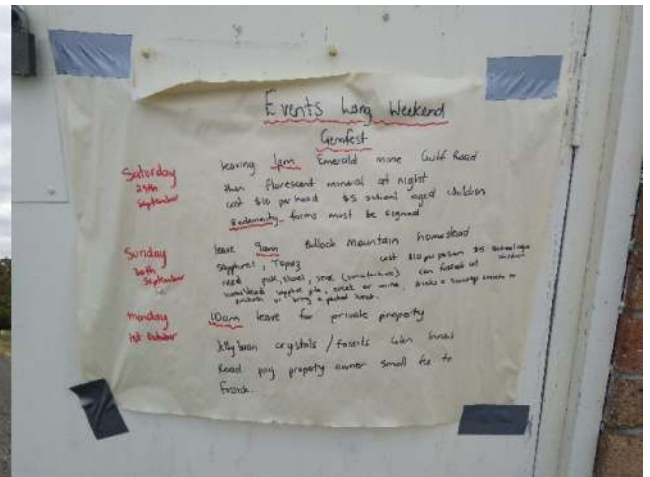 Events Long Weekend
Gemfest
Saturday
29th
September
leaving 1pm Emerald mine Gulf Road
then florescent mineral at night
cost $10 per head $5 school aged children
indemnity forms must be signed
Sunday
30th
September
leave 9am Bullock Mountain homestead
Sapphires, Topaz cost $10 per person $5 school age children
need pick, shovel, sieve can fossick at
homestead sapphire pits, creek or mine, drinks &
purchase or bring a packed lunch.
monday
1st October
10am leave for private property
Jelly bean crystals / fossils Glen Innes
Road pay property owner small fee to
fossick.